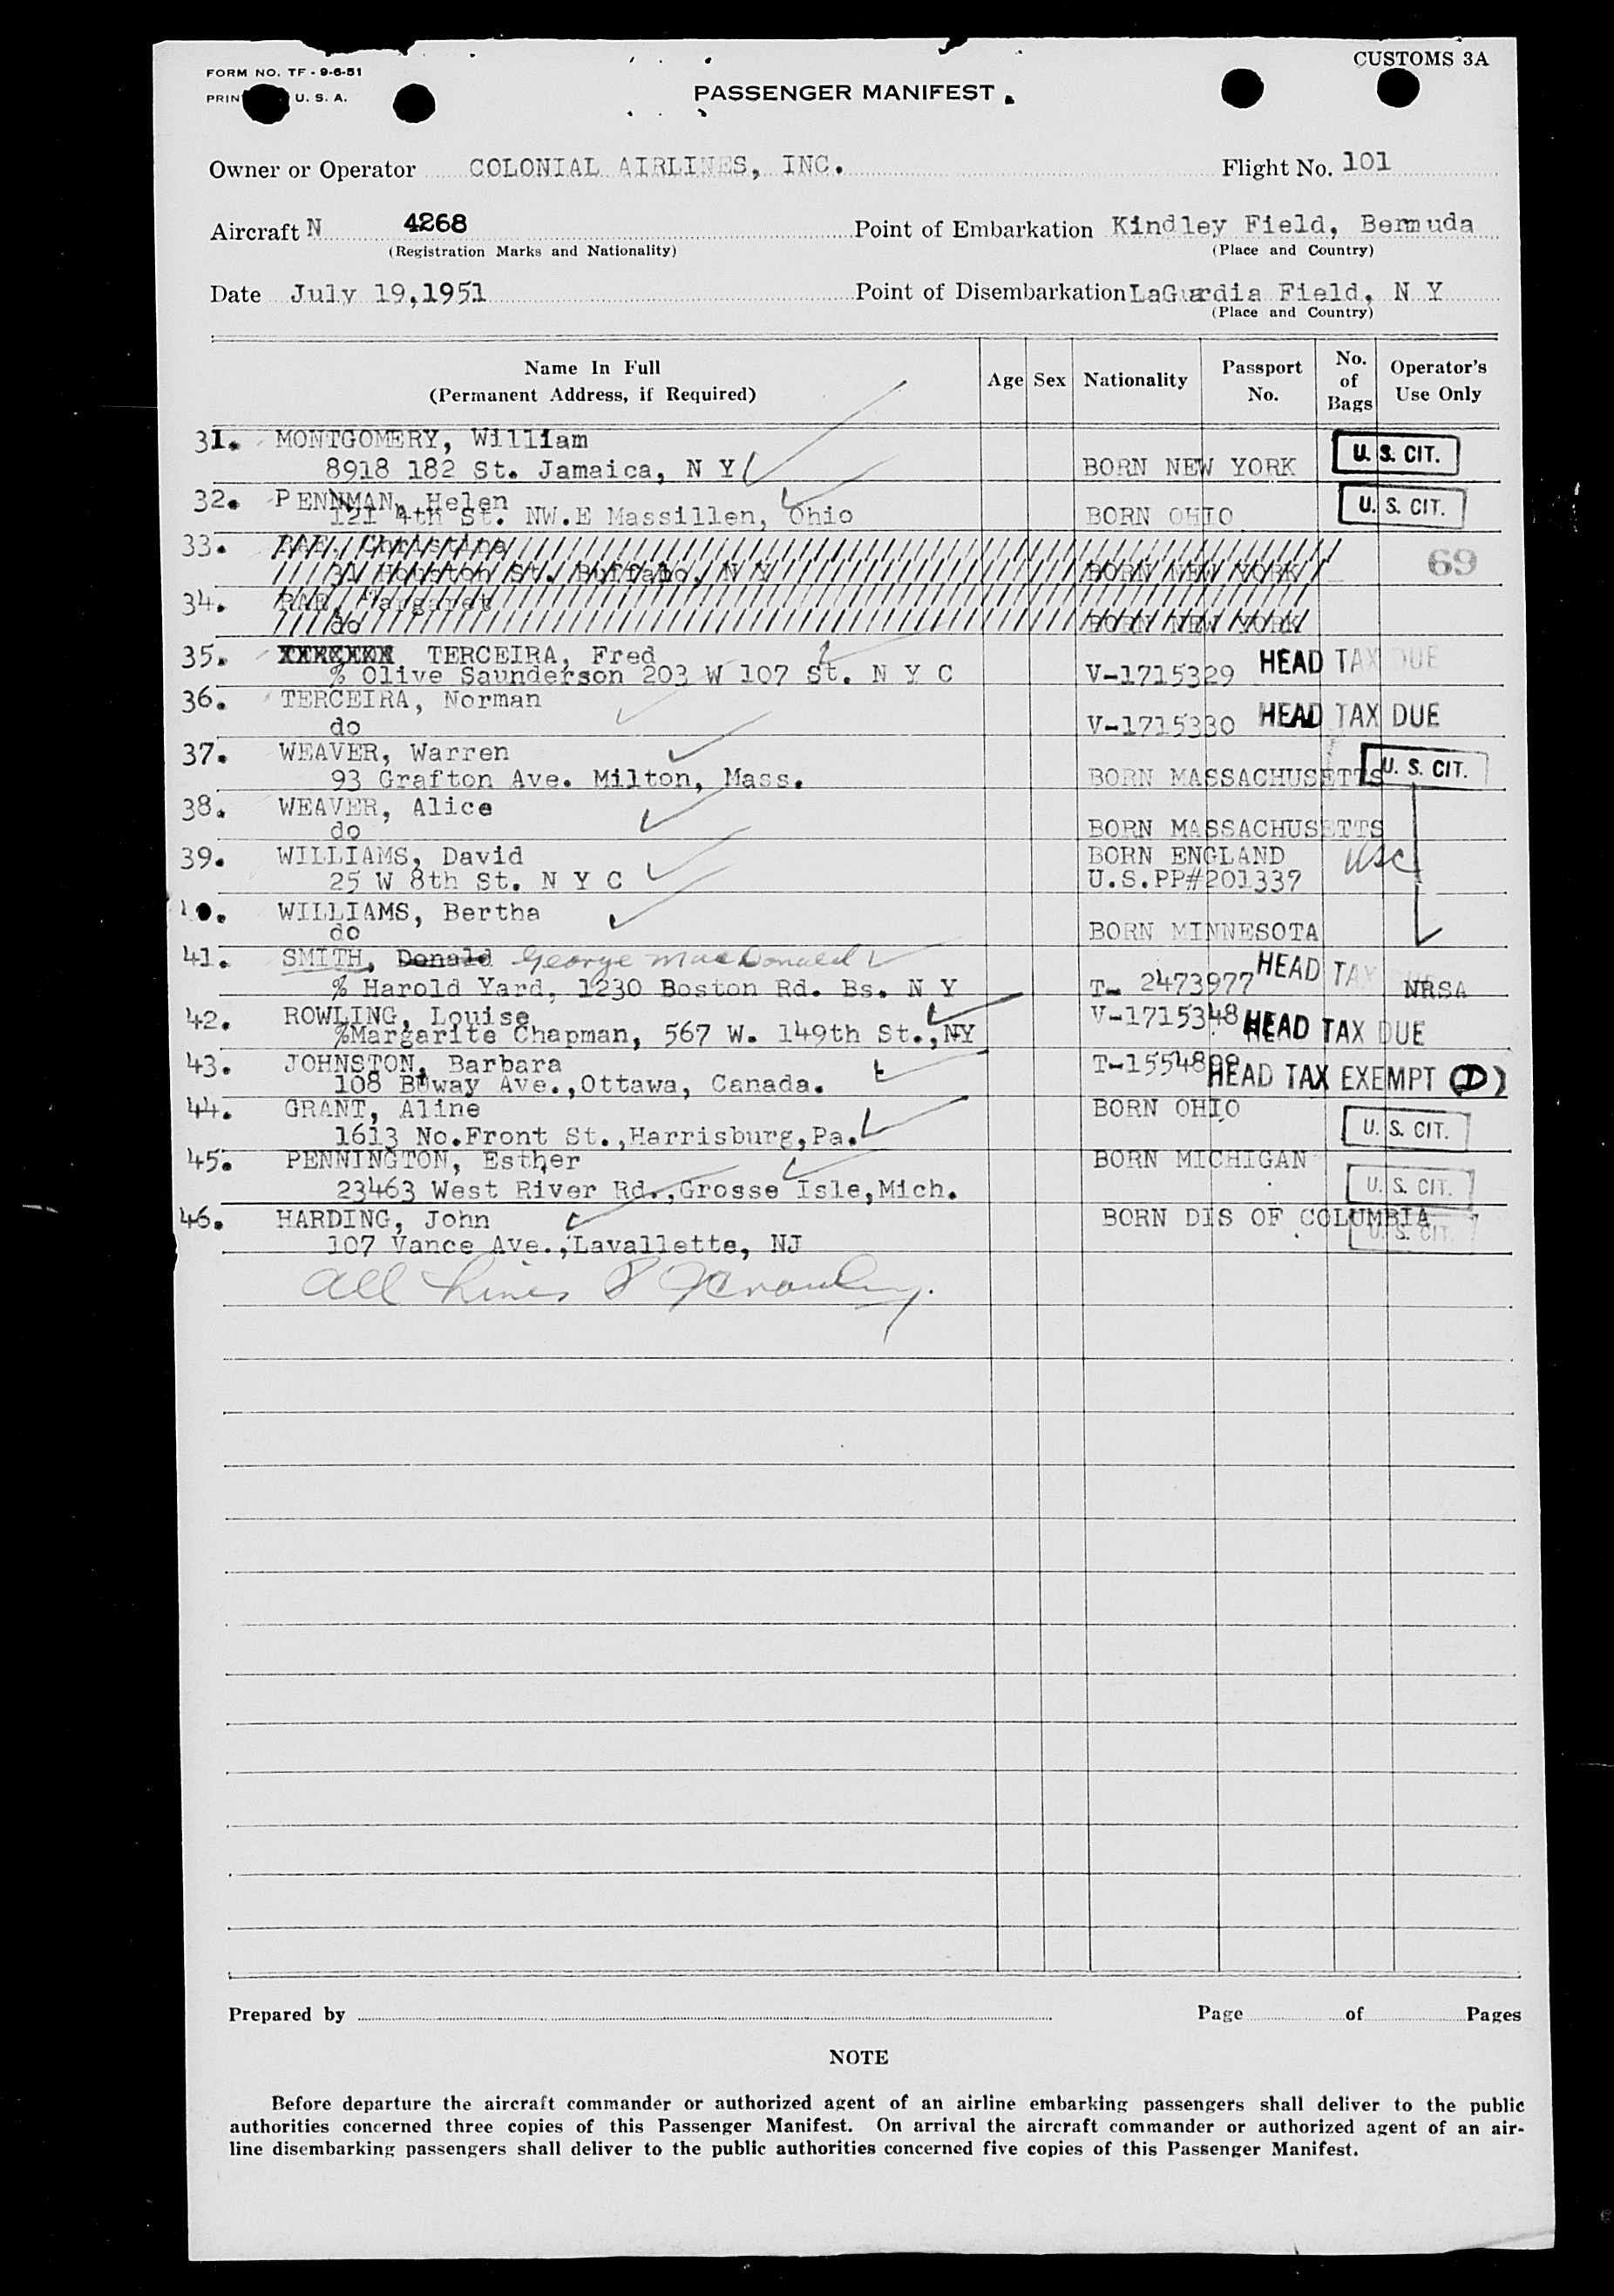 FORM NO. TF - 9-6-51
CUSTOMS 3A
PRIN U. S. A.
PASSENGER MANIFEST
Owner or Operator COLONIAL AIRLINES, INC. Flight No. 101
Aircraft N 4268 Point of Embarkation Kindley Field, Bermuda
(Registration Marks and Nationality) (Place and Country)
Date July 19,1951 Point of Disembarkation LaGuardia Field, N Y
(Place and Country)
Name In Full (Permanent Address, if Required) Age Sex Nationality Passport No. No. of Bags Operator's Use Only
31. MONTGOMERY, William U. S. CIT.
8918 182 St. Jamaica, N Y BORN NEW YORK
32. PENNMAN, Helen U. S. CIT.
121 4th St. NW.E Massillen, Ohio BORN OHIO
33. RAE, Christina 69
31 Houston St. Buffalo, N Y BORN NEW YORK
34. RAE, Margaret
do BORN NEW YORK
35. TERCEIRA, Fred HEAD TAX DUE
% Olive Saunderson 203 W 107 St. N Y C V-1715329
36. TERCEIRA, Norman HEAD TAX DUE
do V-1715330
37. WEAVER, Warren U. S. CIT.
93 Grafton Ave. Milton, Mass. BORN MASSACHUSETTS
38. WEAVER, Alice
do BORN MASSACHUSETTS
39. WILLIAMS, David BORN ENGLAND usc
25 W 8th St. N Y C U.S.PP#201337
WILLIAMS, Bertha
do BORN MINNESOTA
41. SMITH, Donald George MacDonald HEAD TAX DUE
% Harold Yard, 1230 Boston Rd. Bs. N Y T- 2473977 NRSA
42. ROWLING, Louise V-1715348 HEAD TAX DUE
%Margarite Chapman, 567 W. 149th St.,NY
43. JOHNSTON, Barbara T-1554899 HEAD TAX EXEMPT (I)
108 Buway Ave.,Ottawa, Canada.
44. GRANT, Aline BORN OHIO
1613 No.Front St.,Harrisburg,Pa. U. S. CIT.
45. PENNINGTON, Esther BORN MICHIGAN
23463 West River Rd.,Grosse Isle,Mich. U. S. CIT.
46. HARDING, John BORN DIS OF COLUMBIA
107 Vance Ave.,Lavallette, NJ U. S. CIT.
All Lines
Prepared by Page of Pages
NOTE
Before departure the aircraft commander or authorized agent of an airline embarking passengers shall deliver to the public
authorities concerned three copies of this Passenger Manifest. On arrival the aircraft commander or authorized agent of an air-
line disembarking passengers shall deliver to the public authorities concerned five copies of this Passenger Manifest.